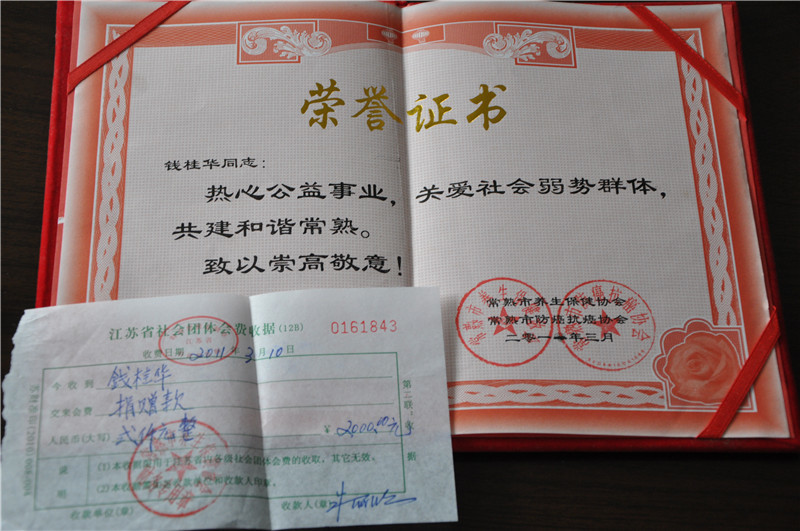 荣誉证书
钱桂华同志：
热心公益事业，关爱社会弱势群体，
共建和谐常熟。
致以崇高敬意！
常熟市养生保健协会
常熟市防癌抗癌协会
二〇一一年三月
江苏省社会团体会费收据(128) 0161843
收费日期 2011年3月10日
今收到 钱桂华
交来会费 捐赠款
人民币(大写) 贰仟元整 ￥2000.00元
说明
(1)本收据需用于江苏省内各级社会团体会费的收取，其它无效。
收款单位(章) 收款人(章)